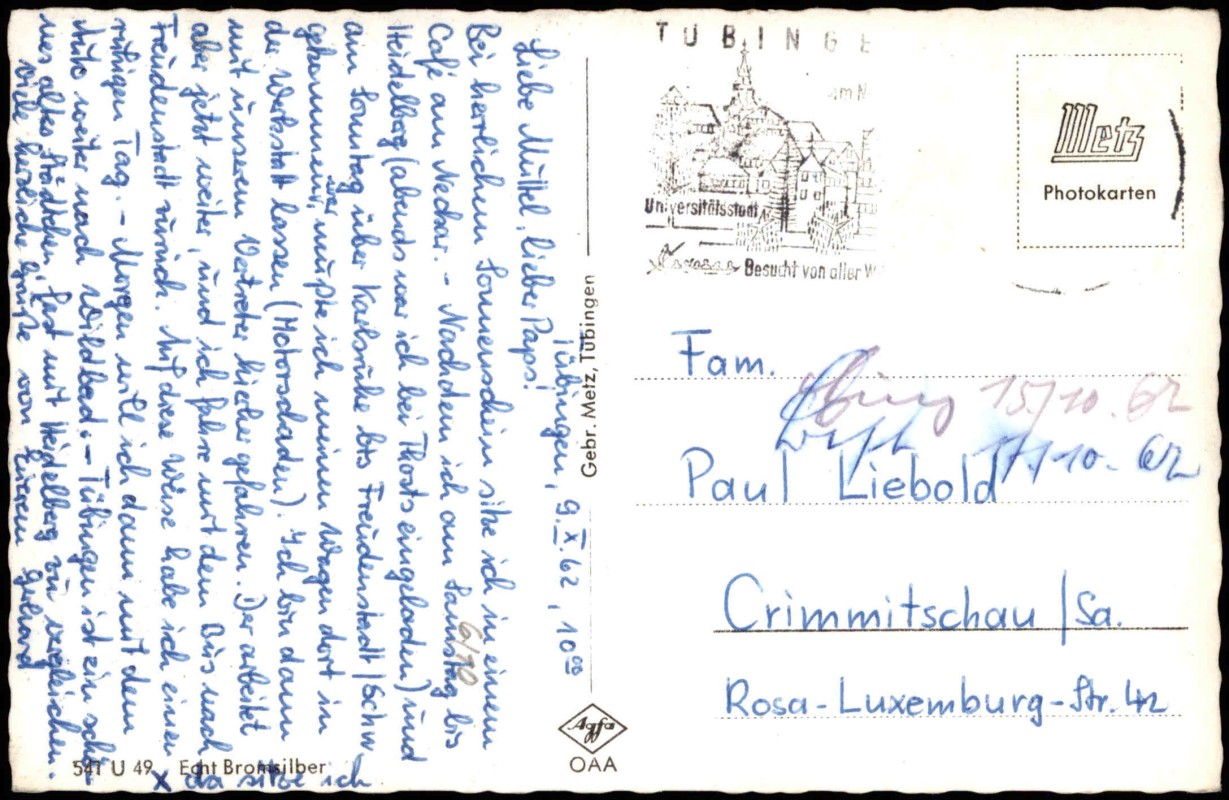 Tübingen, 9.X.62, 10⁰⁰
Liebe Muttel, lieber Paps!
Bei herrlichem Sonnenschein sitze ich in einem
Café am Neckar. - Nachdem ich am Samstag bis
6/10
Heidelberg (abends war ich bei Thosts eingeladen) und
am Sonntag über Karlsruhe bis Freudenstadt/Schw.
gekommen war, mußte ich meinen Wagen dort in
der Werkstatt lassen (Motorschaden). Ich bin dann
mit unserem Vertreter hierher gefahren. Der arbeitet
aber jetzt weiter, und ich fahre mit dem Bus nach
Freudenstadt zurück. Auf diese Weise habe ich einen
ruhigen Tag. - Morgen will ich dann mit dem
Auto weiter nach Wildbad. - Tübingen ist ein schö-
nes altes Städtchen, fast mit Heidelberg zu vergleichen.
Viele herzliche Grüße von Eurem Gerhard
x da sitze ich
541 U 49 Echt Bromsilber
Gebr. Metz, Tübingen
Agfa
OAA
TÜBINGE
am N
Universitätsstadt
Besucht von aller W
Metz
Photokarten
Fam.
15/10. 62
17/10. 62
Paul Liebold
Crimmitschau/Sa.
Rosa-Luxemburg-Str. 42